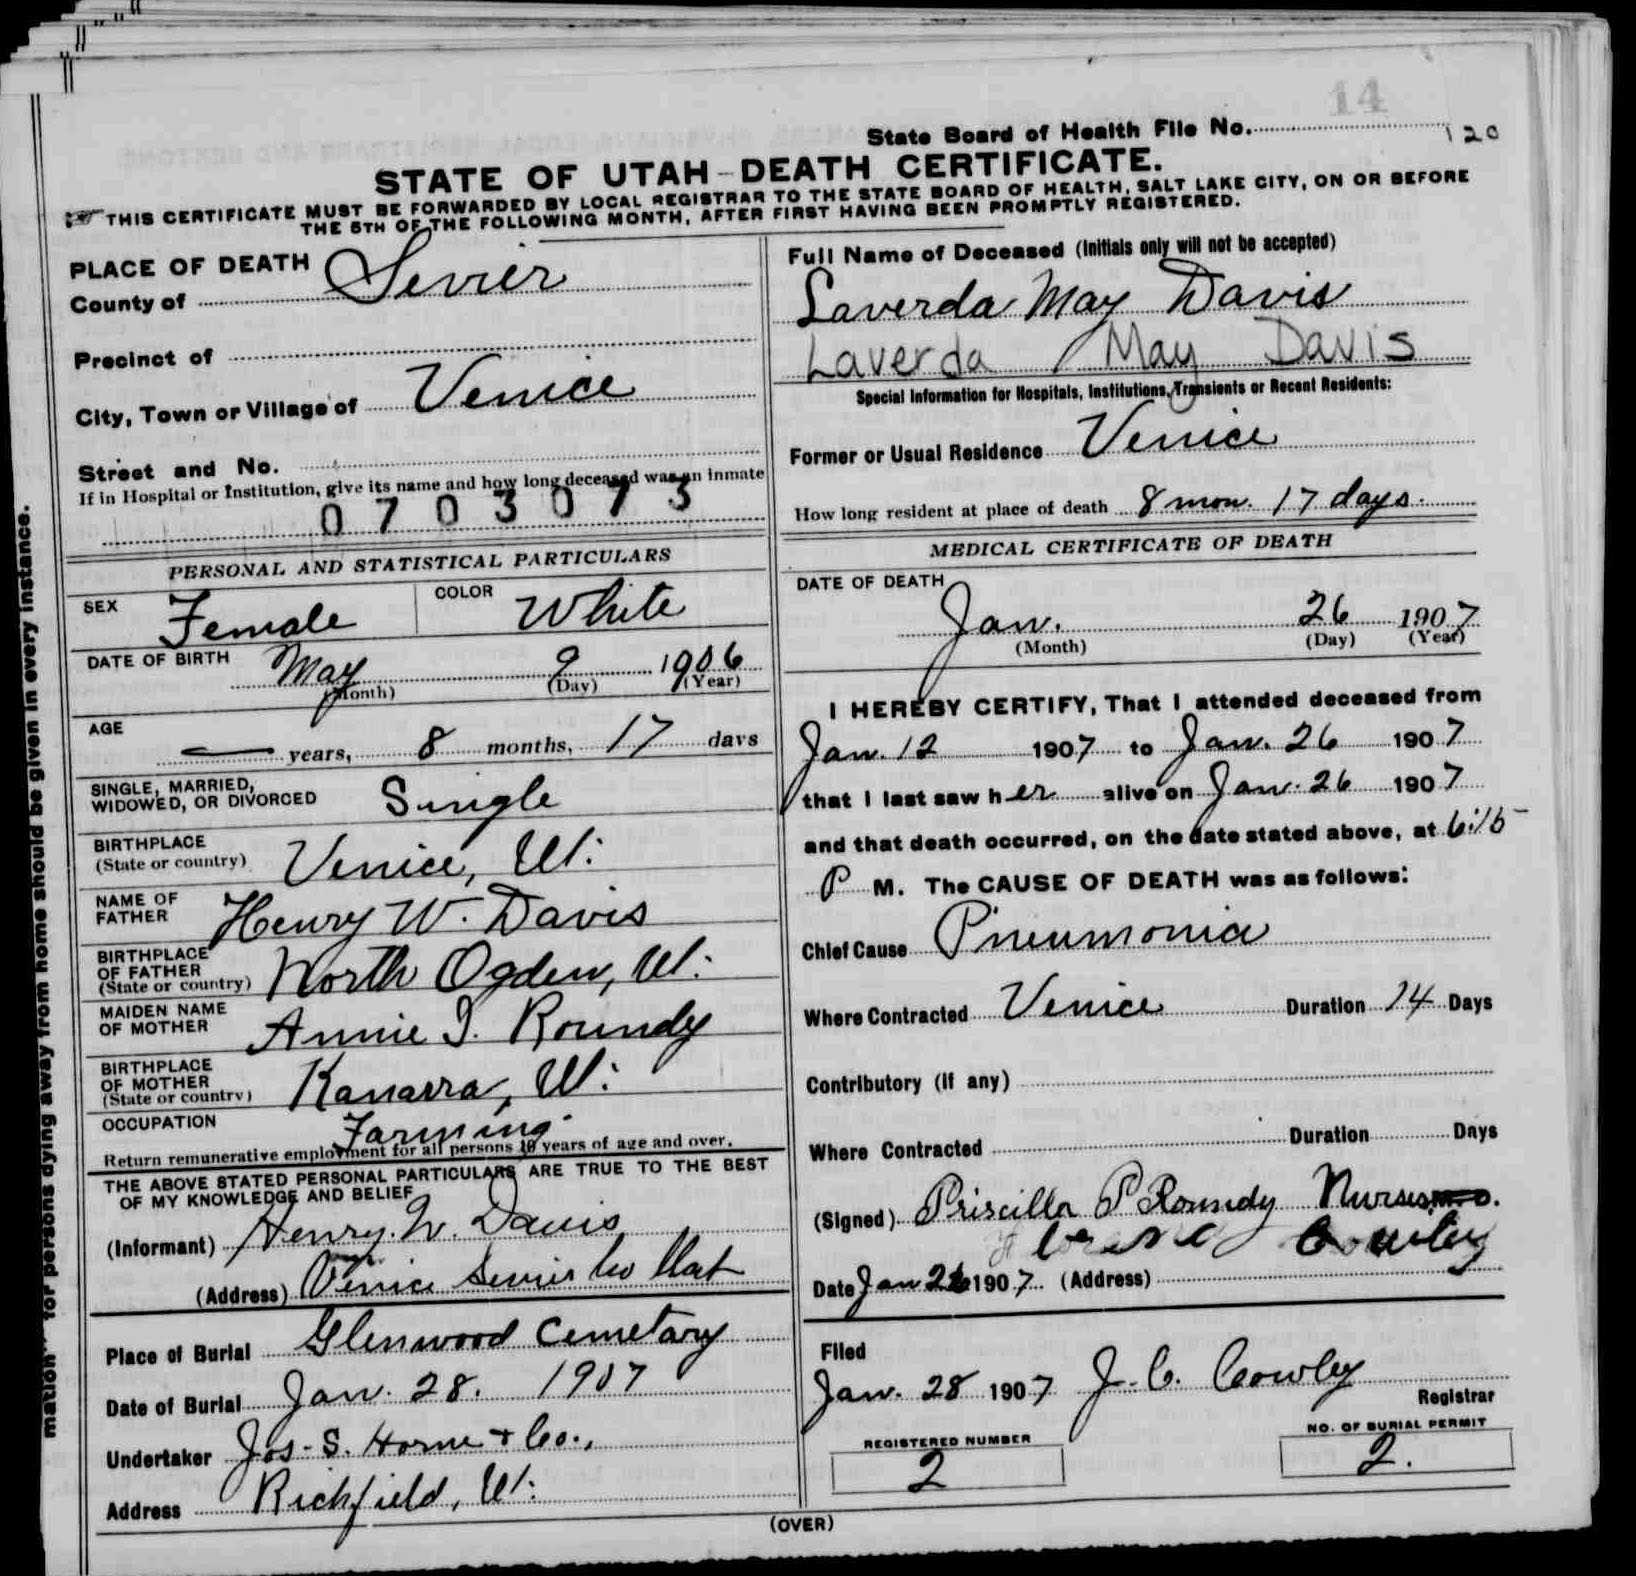 14
State Board of Health File No. 120
STATE OF UTAH-DEATH CERTIFICATE.
THIS CERTIFICATE MUST BE FORWARDED BY LOCAL REGISTRAR TO THE STATE BOARD OF HEALTH, SALT LAKE CITY, ON OR BEFORE
THE 5TH OF THE FOLLOWING MONTH, AFTER FIRST HAVING BEEN PROMPTLY REGISTERED.
PLACE OF DEATH
County of Sevier
Precinct of
City, Town or Village of Venice
Street and No.
If in Hospital or Institution, give its name and how long deceased was an inmate
0703073
PERSONAL AND STATISTICAL PARTICULARS
SEX Female COLOR White
DATE OF BIRTH May 9 1906
(Month) (Day) (Year)
AGE
— years, 8 months, 17 days
SINGLE, MARRIED,
WIDOWED, OR DIVORCED Single
BIRTHPLACE
(State or country) Venice, Ut.
NAME OF
FATHER Henry W. Davis
BIRTHPLACE
OF FATHER
(State or country) North Ogden, Ut.
MAIDEN NAME
OF MOTHER Annie I. Roundy
BIRTHPLACE
OF MOTHER
(State or country) Kanarra, Ut.
OCCUPATION Farming
Return remunerative employment for all persons 10 years of age and over.
THE ABOVE STATED PERSONAL PARTICULARS ARE TRUE TO THE BEST
OF MY KNOWLEDGE AND BELIEF
(Informant) Henry. W. Davis
(Address) Venice Sevier Co Utah
Place of Burial Glenwood Cemetary
Date of Burial Jan. 28. 1907
Undertaker Jos. S. Horne & Co.,
Address Richfield, Ut.
Full Name of Deceased (Initials only will not be accepted)
Laverda May Davis
Laverda May Davis
Special Information for Hospitals, Institutions, Transients or Recent Residents:
Former or Usual Residence Venice
How long resident at place of death 8 mon. 17 days.
MEDICAL CERTIFICATE OF DEATH
DATE OF DEATH
Jan. 26 1907
(Month) (Day) (Year)
I HEREBY CERTIFY, That I attended deceased from
Jan. 12 1907 to Jan. 26 1907
that I last saw her alive on Jan. 26 1907
and that death occurred, on the date stated above, at 6:15
P M. The CAUSE OF DEATH was as follows:
Chief Cause Pneumonia
Where Contracted Venice Duration 14 Days
Contributory (if any)
Where Contracted Duration Days
(Signed) Priscilla P Roundy Nurses M.D.
Cowley
Date Jan 26 1907 (Address)
Filed
Jan. 28 1907 J. C. Cowley
Registrar
REGISTERED NUMBER
2
NO. OF BURIAL PERMIT
2.
(OVER)
mation for persons dying away from home should be given in every instance.